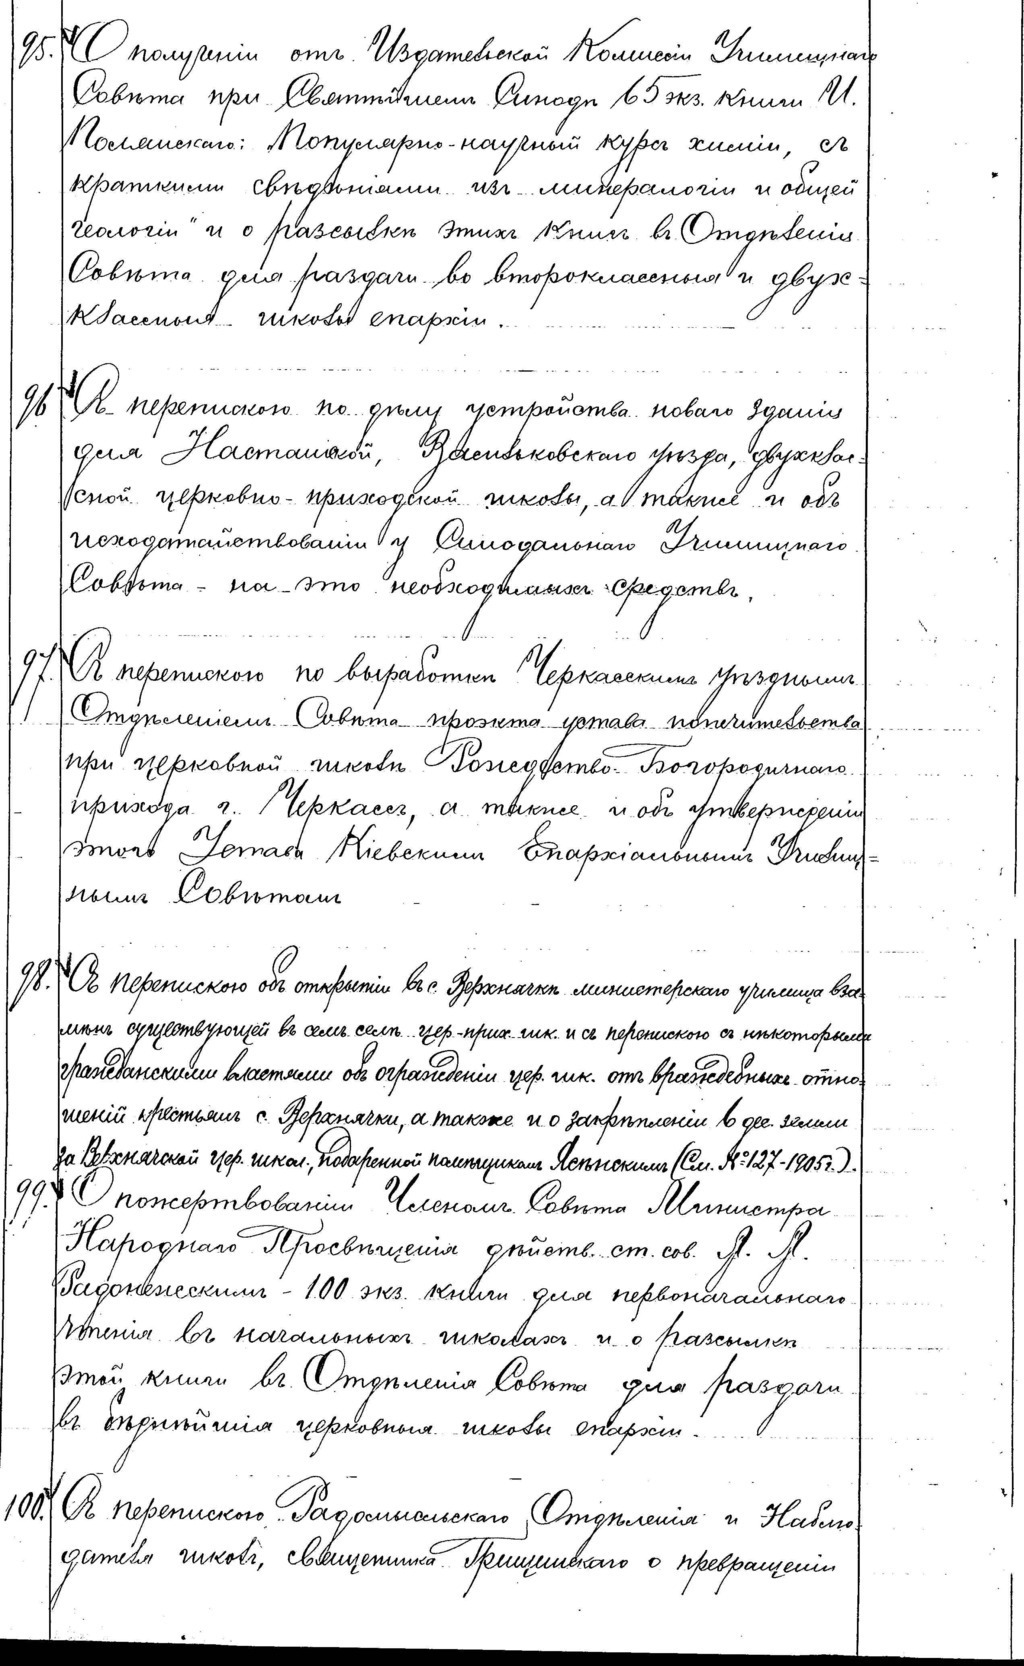 95. О полученіи отъ Издательской Коммисіи Училищнаго
Совѣта при Святѣйшемъ Синодѣ 65 экз. книги И.
Полянскаго: Популярно-научный курсъ химіи, съ
краткими свѣдѣніями изъ минералогіи и общей
геологіи" и о разсылкѣ этихъ книгъ въ Отдѣленія
Совѣта для раздачи во второклассныя и двух-
классныя школы епархіи.
96. Съ перепискою по дѣлу устройства новаго зданія
для Насташской, Васильковскаго уѣзда, двухклас-
сной церковно-приходской школы, а также и объ
исходатайствованіи у Синодальнаго Училищнаго
Совѣта - на это необходимыхъ средствъ.
97. Съ перепискою по выработкѣ Черкасскимъ уѣзднымъ
Отдѣленіемъ Совѣта проэкта устава попечительства
при церковной школѣ Рождество-Богородичнаго
прихода г. Черкассъ, а также и объ утвержденіи
этого Устава Кіевскимъ Епархіальнымъ Училищ-
нымъ Совѣтомъ
98. Съ перепискою объ открытіи въ с. Верхнячкѣ министерскаго училища вза-
мѣнъ существующей въ семъ селѣ цер.-прих. шк. и съ перепискою съ нѣкоторыми
гражданскими властями объ огражденіи цер. шк. отъ враждебныхъ отно-
шеній крестьянъ с. Верхнячки, а также и о закрѣпленіи 6 дес. земли
за Верхнячской цер. школ., подаренной помѣщикомъ (См. № 127-1905г.).
99. О пожертвованіи Членомъ Совѣта Министра
Народнаго Просвѣщенія дѣйств. ст. сов.
Радонежскимъ - 100 экз. книги для первоначальнаго
чтенія въ начальныхъ школахъ и о разсылкѣ
этой книги въ Отдѣленія Совѣта для раздачи
въ бѣднѣйшія церковныя школы епархіи.
100. Съ перепискою Радомысльскаго Отдѣленія и Наблю-
дателя школъ, священника о превращеніи